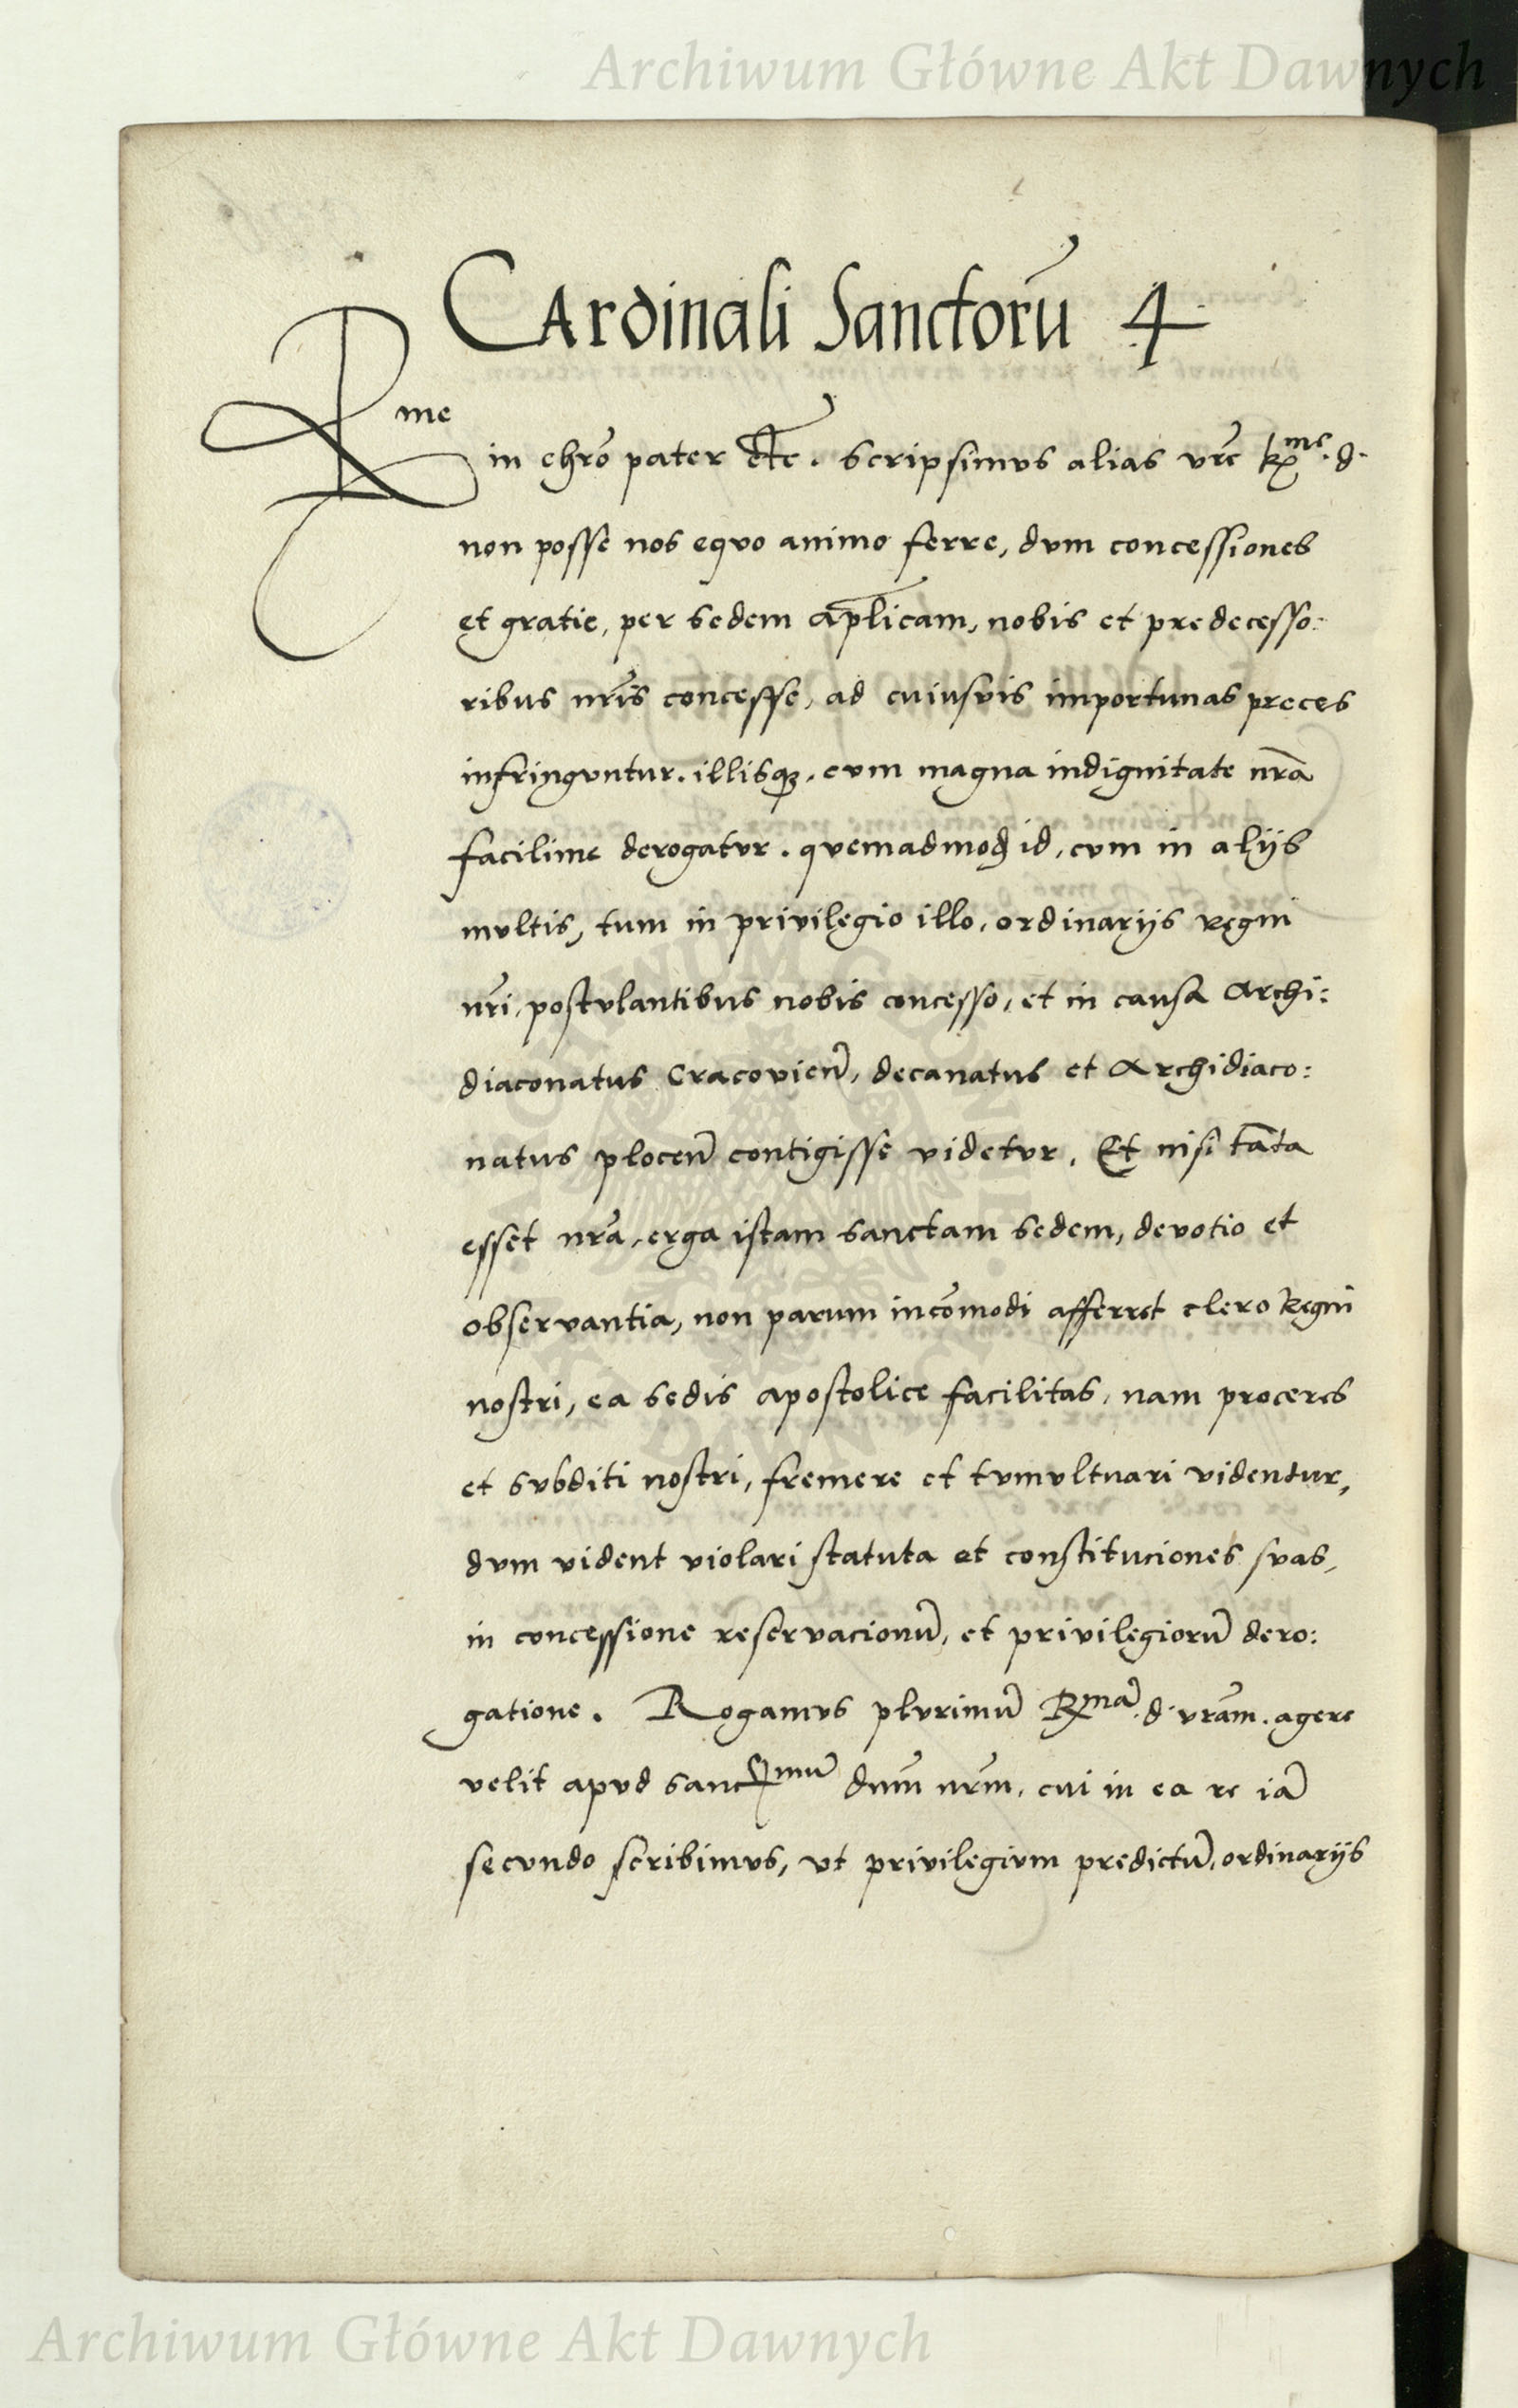 Archiwum Główne Akt Dawnych
CArdinali Sanctorū 4
Rme
in chrō pater etc. scripsimus alias vrē Rme. d.
non posse nos equo animo ferre, dum concessiones
et gratie, per sedem aplicam, nobis et predecesso:
ribus nrīs concesse, ad cuiusvis importunas preces
infringuntur. illisqz. cum magna indignitate nrā
facilime derogatur. quemadmod id, cum in aliis
multis, tum in privilegio illo, ordinariis Regni
nrī, postulantibus nobis concesso, et in causa Archi:
diaconatus Cracovien, decanatus et Archidiaco:
natus plocen contigisse videtur. Et nisi tāta
esset nrā, erga istam sanctam sedem, devotio et
observantia, non parum incōmodi afferret clero Regni
nostri, ea sedis apostolice facilitas, nam proceres
et subditi nostri, fremere et tumultuari videntur,
dum vident violari statuta et constituciones suas,
in concessione reservacionū, et privilegiorū dero:
gatione. Rogamus plurimū Rmā. d. vrām. agere
velit apud sanctmū dnm̄ nrm̄, cui in ea re iā
secundo scribimus, ut privilegium predictū, ordinariis
Archiwum Główne Akt Dawnych